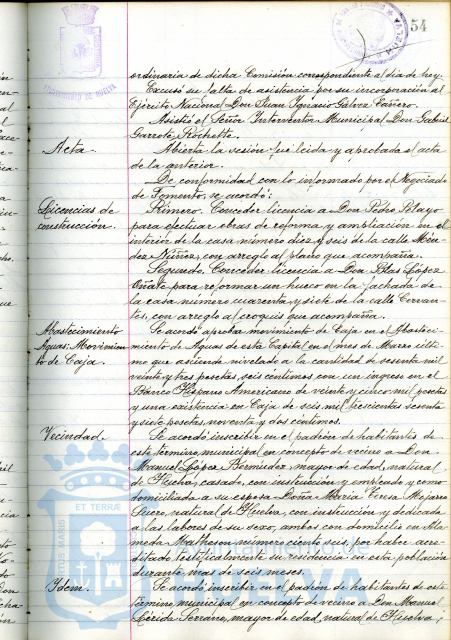 54
ordinaria de dicha Comisión correspondiente al día de hoy.
Excusó su falta de asistencia por su incorporación al
Ejército Nacional Don Juan Ignacio Gálvez Cañero.
Asistió el Señor Interventor Municipal Don Gabriel
Garrote Rochett.
Acta.
Abierta la sesión fué leida y aprobada el acta
de la anterior.
De conformidad con lo informado por el Negociado
de Fomento, se acordó:
Licencias de
construcción.
Primero. Conceder licencia a Don Pedro Pelayo
para efectuar obras de reforma y ampliación en el
interior de la casa número diez y seis de la calle Mén-
dez Núñez, con arreglo al plano que acompaña.
Segundo. Conceder licencia a Don Blas López
Oñate para reformar un hueco en la fachada de
la casa número cuarenta y siete de la calle Cervan-
tes, con arreglo al croquis que acompaña.
Abastecimiento
Aguas: Movimien-
to de Caja.
Se acordó aprobar movimiento de Caja en el Abasteci-
miento de Aguas de esta Capital en el mes de Marzo últi-
mo que asciende nivelado a la cantidad de sesenta mil
veinte y tres pesetas, seis céntimos con un ingreso en el
Banco Hispano Americano de veinte y cinco mil pesetas
y una existencia en Caja de seis mil trescientas sesenta
y siete pesetas, noventa y dos céntimos.
Vecindad.
Se acordó inscribir en el padrón de habitantes de
este término municipal en concepto de vecino a Don
Manuel López Bermúdez, mayor de edad, natural
de casado, con instrucción y empleado y como
domiciliada a su esposa Doña María Teresa Mojarro
natural de Huelva, con instrucción y dedicada
a las labores de su sexo, ambos con domicilio en Ala-
meda Matheson número ciento seis, por haber acre-
ditado testificalmente su residencia en esta población
durante mas de seis meses.
Idem.
Se acordó inscribir en el padrón de habitantes de este
término municipal en concepto de vecino a Don Manuel
Serrano, mayor de edad, natural de Huelva,
ET TERRÆ
Ayuntamiento de
HUELVA